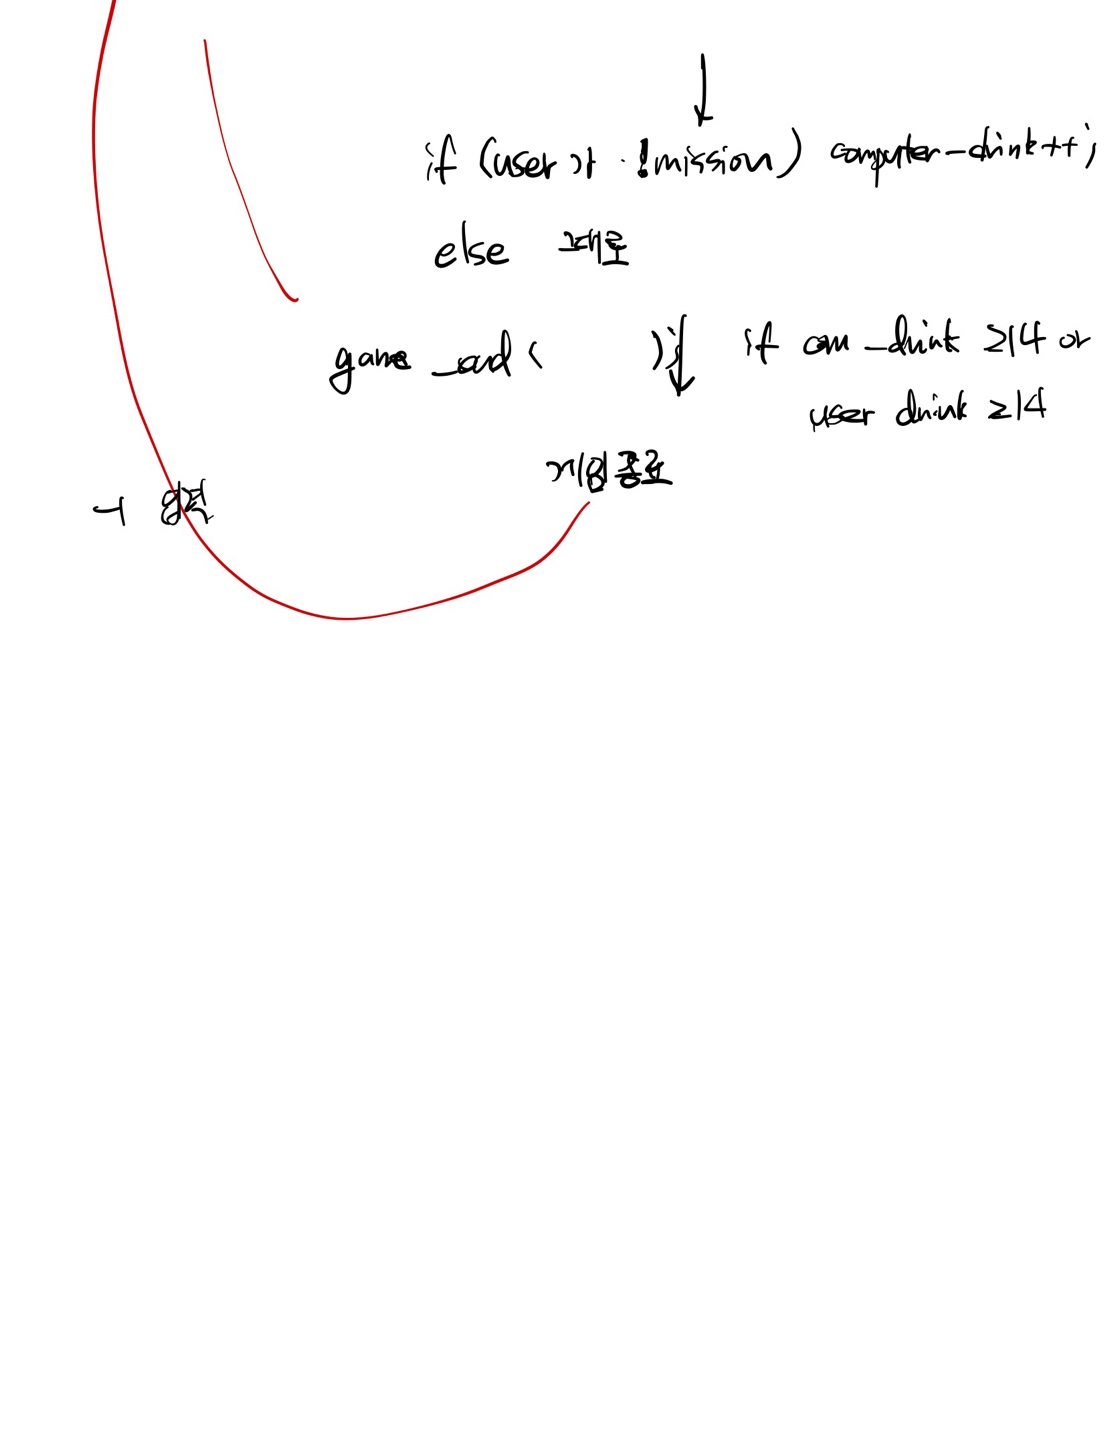 if (user가 !mission) computer-drink++;
else 그대로
game_end ( ); if com_drink ≥14 or
user drink ≥14
게임종료
ㅓ 입력